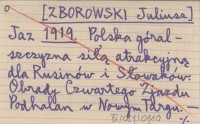 [ZBOROWSKI Juliusz]
Jaz 1919. Polska góral-
szczyzna siłą atrakcyjną
dla Rusinów i Słowaków.
Obrady Czwartego Zjazdu
Podhalan w Nowym Targu.